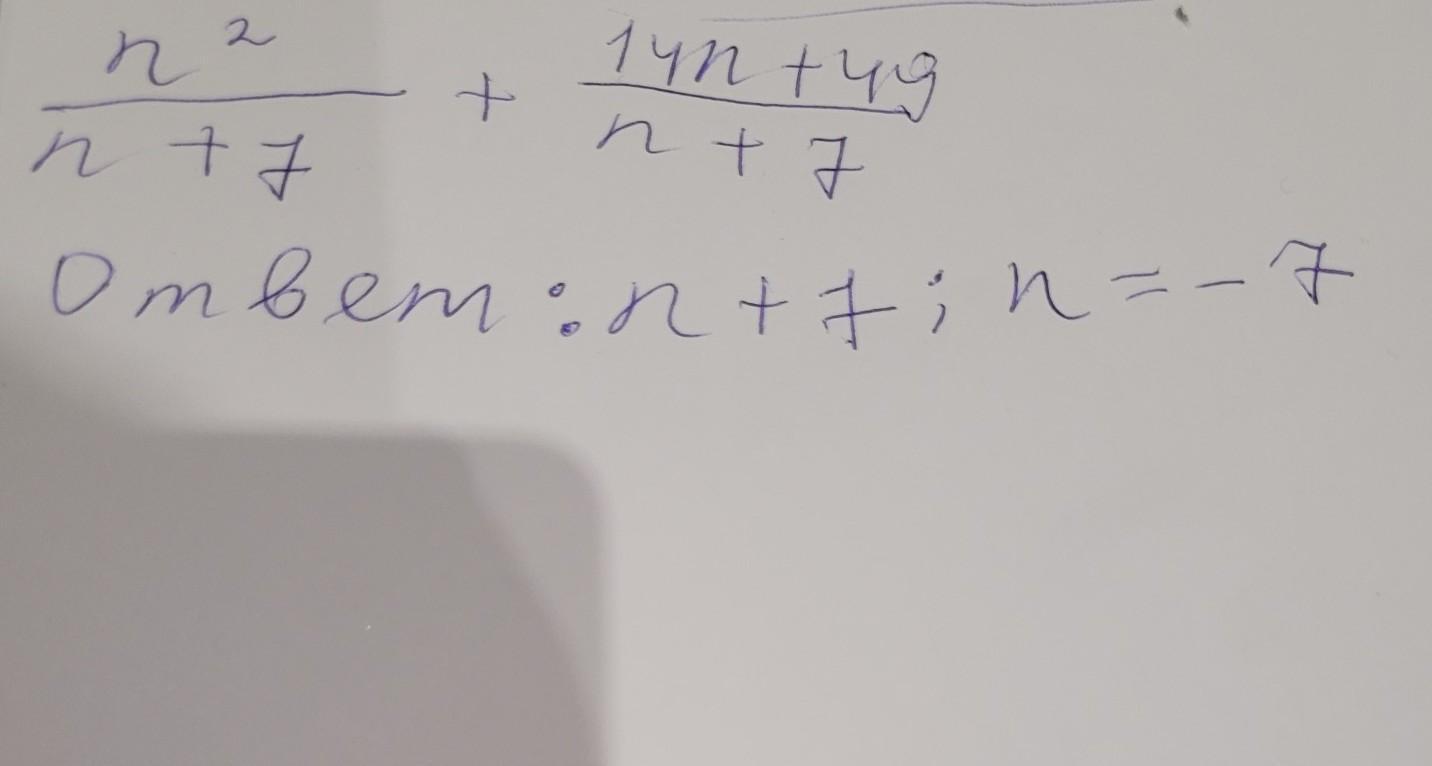 n²/(n + 7) + (14n + 49)/(n + 7)
Ответ: n + 7; n = - 7